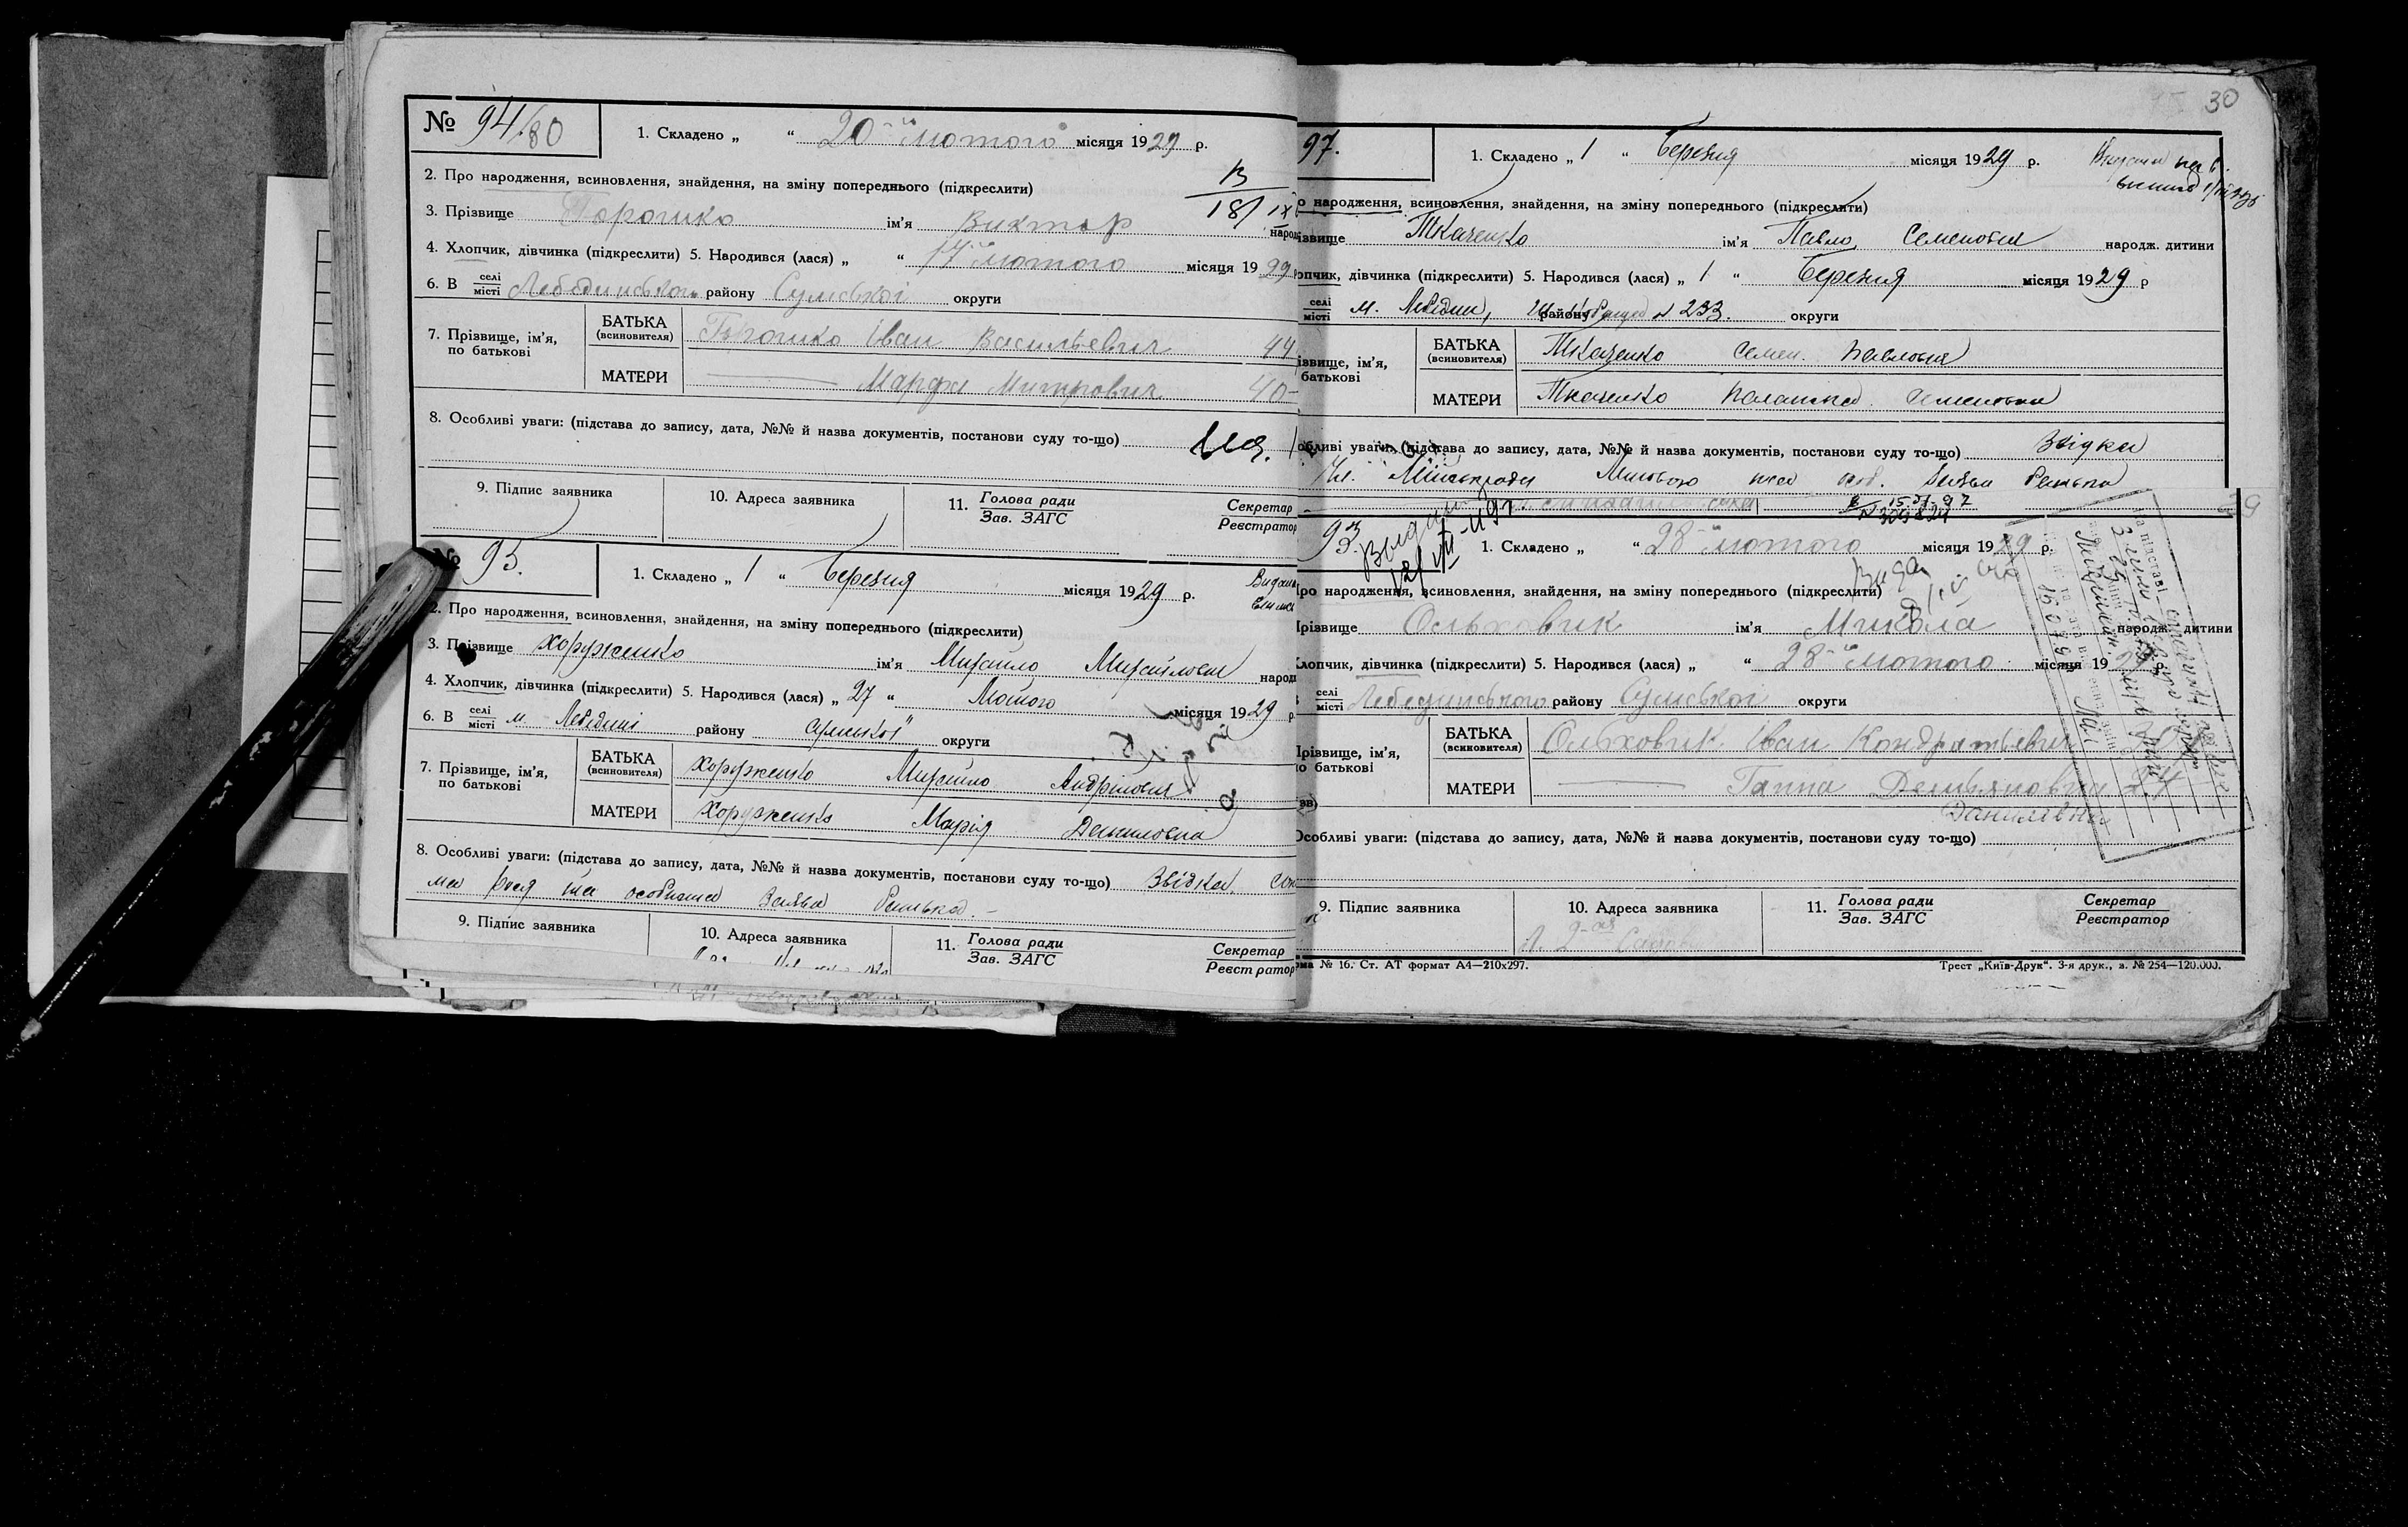 № 94/80
1. Складено „ “ 20-го Лютого місяця 1929 р.
2. Про народження, всиновлення, знайдення, на зміну попереднього (підкреслити)
В
18/IX
3. Прізвище Порошко ім'я Виктор народ
4. Хлопчик, дівчинка (підкреслити) 5. Народився (лася) „ “ 17-го Лютого місяця 1929
6. В селі місті Лебединського району Сумської округи
7. Прізвище, ім'я, по батькові
БАТЬКА (всиновителя) Порошко Іван Васильевич 44
МАТЕРИ Марфа Митрович 40
8. Особливі уваги: (підстава до запису, дата, №№ й назва документів, постанови суду то-що)
9. Підпис заявника
10. Адреса заявника
11. Голова ради Зав. ЗАГС
Секретар
Реєстратор
№ 95.
1. Складено „ 1 “ Березня місяця 1929 р.
2. Про народження, всиновлення, знайдення, на зміну попереднього (підкреслити)
3. Прізвище Хоруженко ім'я Михайло Михайлович народ
4. Хлопчик, дівчинка (підкреслити) 5. Народився (лася) „ 27 “ Лютого місяця 1929 р.
6. В селі місті м. Лебедині району Сумської округи
7. Прізвище, ім'я, по батькові
БАТЬКА (всиновителя) Хоруженко Михайло Андрійович
МАТЕРИ Хоруженко Марія Даниловна
8. Особливі уваги: (підстава до запису, дата, №№ й назва документів, постанови суду то-що) Звідка
та особиста Заява батька.
9. Підпис заявника
10. Адреса заявника
11. Голова ради Зав. ЗАГС
Секретар
Реєстратор
30
97.
1. Складено „ 1 “ Березня місяця 1929 р.
о народження, всиновлення, знайдення, на зміну попереднього (підкреслити)
ізвище Ткаченко ім'я Павло Семенович народж. дитини
опчик, дівчинка (підкреслити) 5. Народився (лася) „ 1 “ Березня місяця 1929 р
селі місті м. Лебедин, району № 233. округи
ізвище, ім'я, батькові
БАТЬКА (всиновителя) Ткаченко Семен Павлович
МАТЕРИ Ткаченко Палашка Семеновна
обливі уваги: (підстава до запису, дата, №№ й назва документів, постанови суду то-що) Звідка
Міськради та особ. Заява батька
93.
1. Складено „ “ 28-го Лютого місяця 1929 р.
Про народження, всиновлення, знайдення, на зміну попереднього (підкреслити)
Прізвище Ольховик ім'я Микола народж. дитини
Хлопчик, дівчинка (підкреслити) 5. Народився (лася) „ “ 28-го Лютого місяця 1929
селі місті Лебединського району Сумської округи
Прізвище, ім'я, по батькові
БАТЬКА (всиновителя) Ольховик Іван Кондратьевич
МАТЕРИ Ганна Демьяновна 24
Данилівна
Особливі уваги: (підстава до запису, дата, №№ й назва документів, постанови суду то-що)
9. Підпис заявника
10. Адреса заявника
11. Голова ради Зав. ЗАГС
Секретар
Реєстратор
рма № 16. Ст. АТ формат А4—210х297.
Трест „Київ-Друк“. 3-я друк., з. № 254—120.000.